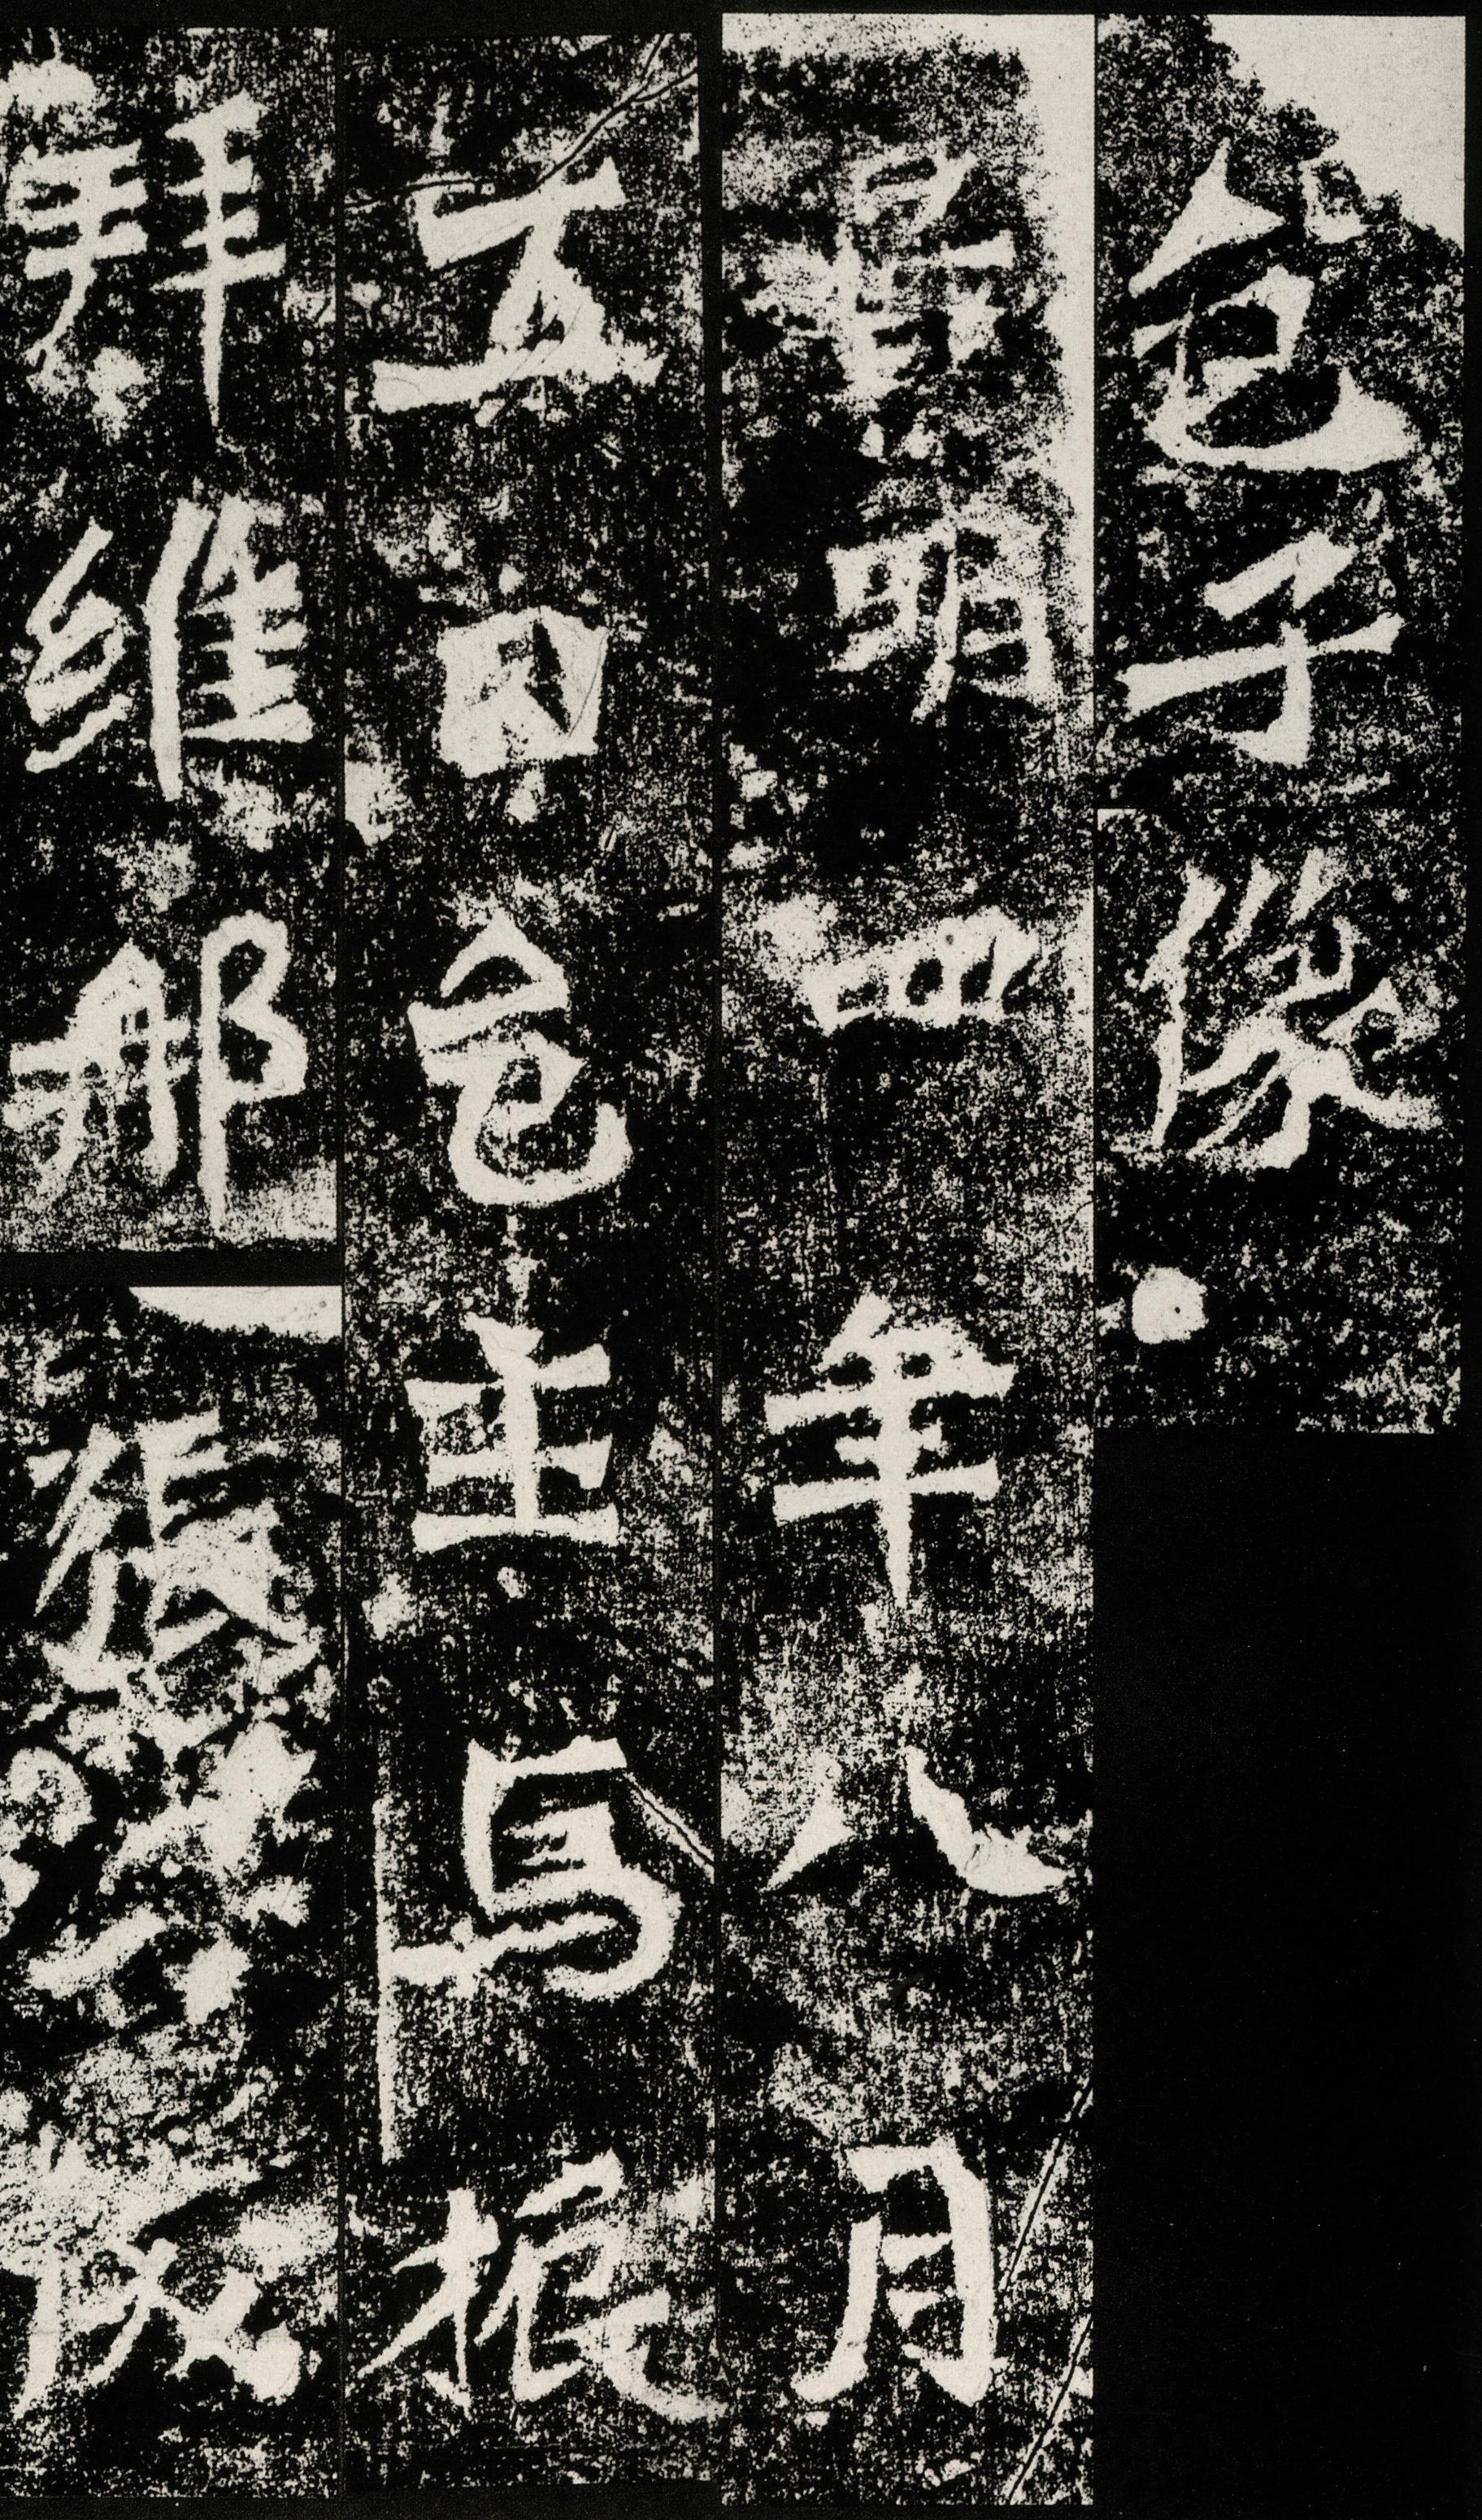 邑子像
景明四年八月
五日邑主馬振
拜維那張子成